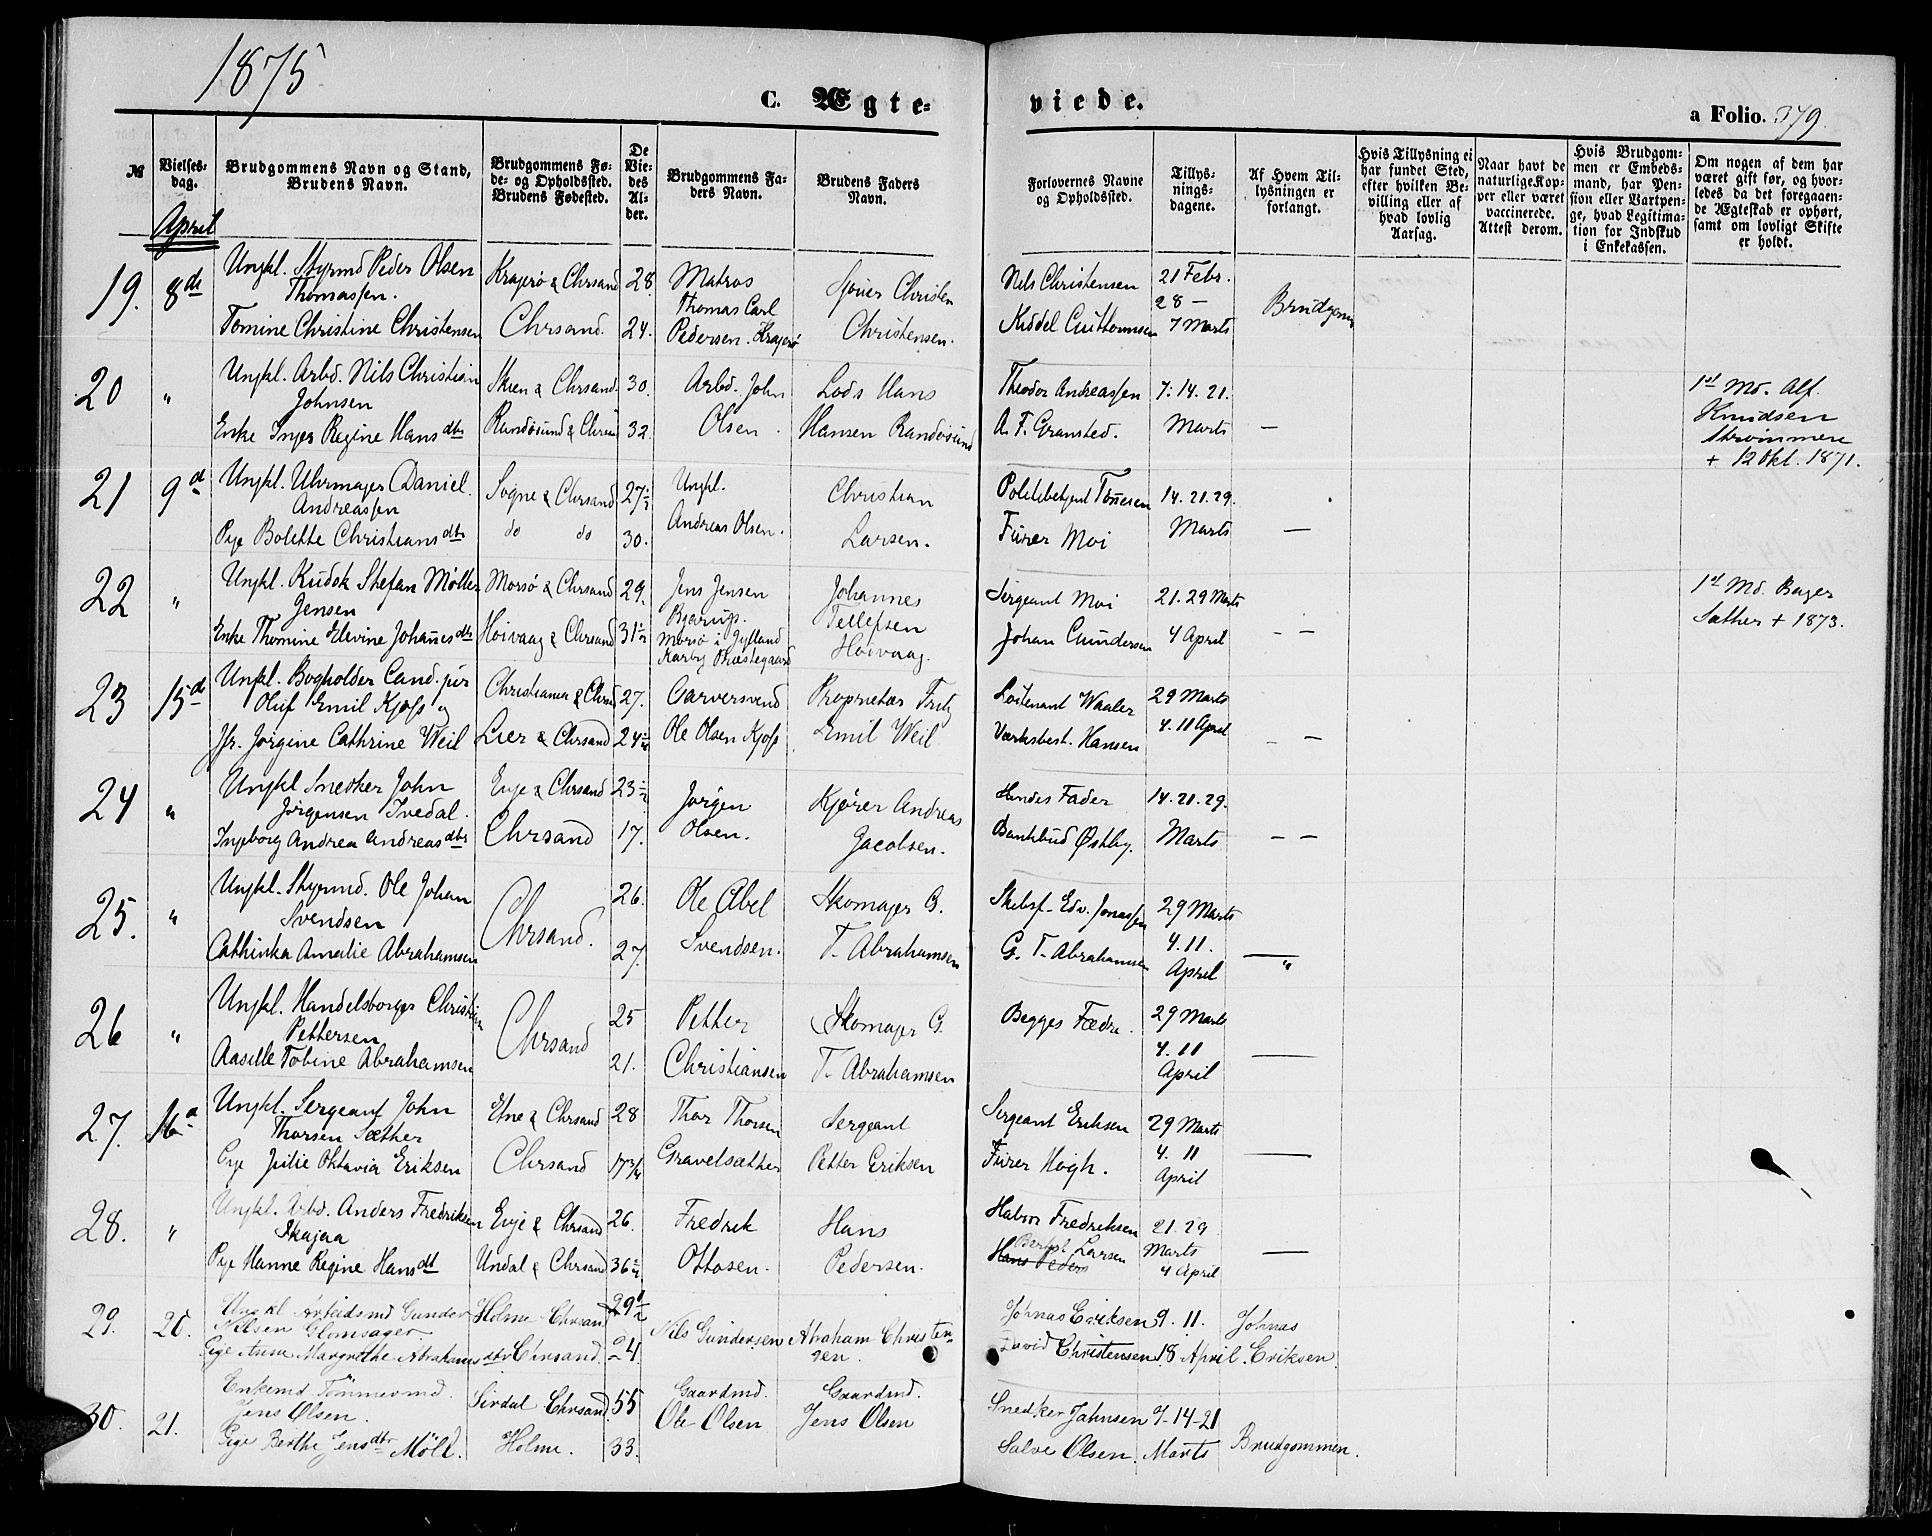 1875
C. Ægte-
viede.
a Folio. 379.
№
Vielses-
dag.
Brudgommens Navn og Stand,
Brudens Navn.
Brudgommens Fø-
de- og Opholdssted.
Brudens Fødested.
De
Vie-
des
Al-
der.
Brudgommens Fa-
ders Navn.
Brudens Faders
Navn.
Forlovernes Navne
og Opholdssted.
Tillys-
nings-
dagene.
Af Hvem Til-
lysningen er
forlangt.
Hvis Tillysning ei
har fundet Sted,
efter hvilken Be-
villing eller af
hvad lovlig
Aarsag.
Naar havt de
naturlige Kop-
per eller været
vaccinerede.
Attest derom.
Hvis Brudgom-
men er Embeds-
mand, har Pen-
sion eller Vartpen-
ge, hvad Legitima-
tion for Indskud
i Enkekassen.
Om nogen af dem har
været gift før, og hvor-
ledes da det foregaaen-
de Ægteskab er ophørt,
samt om lovligt Skifte
er holdt.
April
19. 8de Ungkl. Styrmd Peder Olsen Kragerø & Chrsand 28. Matros Christen Nils Christensen 21 Febr.
Thomassen. Thomas Carl 28 — Brudgom
Tomine Christine Christensen Chrsand. 24. Pedersen. Kragerø Christensen. Kiddel 7 Marts
20 " Ungkl. Arbd. Nils Christian Skien & Chrsand. 30. Arbd. John Lods Hans Theodor Andreassen 7. 14. 21. 1st Md. Alf.
Johnsen Knudsen
Enke Inger Regine Hansdtr Randøsund & Chrsand 32. Olsen. Hansen Randøsund A. F. Gransted. Marts — Strømmen
+ 12 Okt. 1871.
21 9d Ungkl. Uhrmager Daniel Sogne & Chrsand 27½ Ungkl. Christian Politibetjent Tønnesen 14. 21. 29.
Andreassen
Pige Bolette Christiansdtr do do 30. Andreas Olsen. Larsen. Furer Moi Marts —
22 " Ungkl. Kudsk Stefan Møller Morsø & Chrsand 29. Jens Jensen Johannes Sergeant Moi 21. 29 Marts 1st Md. Bager
Jensen Bjarup. Tellefsen
Enke Thomine Elevine Johannesdtr Høivaag & Chrsand 31½ Morsø i Jylland Høivaag. Johan Gundersen 4 April — — Sather + 1873.
Karby Præstegaard
23 15d Ungkl. Bogholder Cand. jur Christiania & Chrsand 27. Garversvend Proprietær Fritz Løitenant Waaler 29 Marts
Oluf Emil Kjøss og
Jfr. Jørgine Cathrine Weil Lier & Chrsand 24½ Ole Olsen Kjøss Emil Weil Værksbest. Hansen 4. 11 April — —
24 " Ungkl Snedker John Evje & Chrsand 23½ Jørgen Kjører Andreas Hendes Fader 14. 21. 29.
Jørgensen Ivedal.
Ingborg Andrea Andreasdtr Chrsand 17. Olsen. Jacobsen. Bankbud Østby. Marts — —
25. " Ungkl. Styrmd. Ole Johan Chrsand. 26. Ole Abel Skomager G. Skibsf. Edv. Jonassen 29 Marts
Svendsen 4. 11.
Cathinka Amalie Abrahamsen 27. Svendsen. T. Abrahamsen G. T. Abrahamsen April — "
26 " Ungkl. Handelsborger Christian Chrsand 25 Petter Skomager G. Begges Fædre. 29 Marts
Pettersen 4. 11
Aaselle Tobine Abrahamsen 21. Christiansen T. Abrahamsen April —
27. 16d Ungkl. Sergeant John Etne & Chrsand 28 Thor Thorsen Sergeant Sergeant Eriksen 29 Marts
Thorsen Sæther 4. 11
Pige Julie Oktavia Eriksen Chrsand 17¾ Gravelsæther Petter Eriksen Furer Høgh. April —
28. " Ungkl. Arbd. Anders Fredriksen Evje & Chrsand 26. Fredrik Hans Halvor Fredriksen 21. 29
Skajaa Bernt Larsen Marts
Pige Hanne Regine Hansdt Undal & Chrsand 36½ Ottosen. Pedersen. Hans Peders 4 April —
29. 20. Ungkl Arbeidsmd Gunder Holme Chrsand 29½ Nils Gundersen Abraham Christen- Johnas Eriksen 9. 11. Johnas
Nilsen Glomsager.
Pige Anne Margrethe Abrahamsdtr Chrsand. 24. sen. David Christensen 18 April. Eriksen.
30. 21. Enkemd Tømmermd. Sirdal Chrsand. 55 Gaardmd. Gaardmd. Snedker Jahnsen 7-14-21
Jens Olsen. Ole Olsen Jens Olsen
Pige Berthe Jensdtr Møll. Holme. 33. Salve Olsen. Marts Brudgommen.